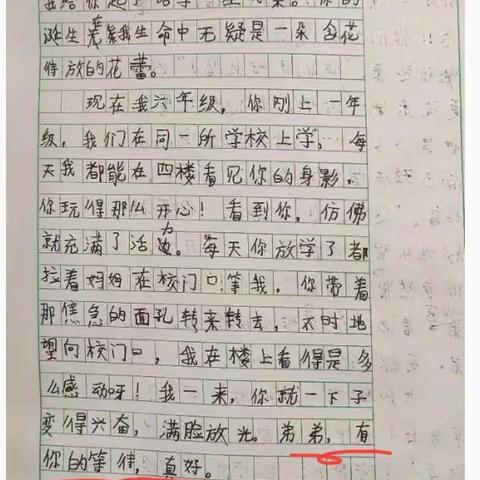 诞生是我们生命中无疑是一朵含花
待放的花蕾。
现在我六年级，你刚上一年
级，我们在同一所学校上学，…每
天我都能在四楼看见你的身影，
你玩得那么开心！看到你，仿佛
就充满了活力。每天你放学了都
拉着妈妈在校门口等我，你带着
那焦急的面孔转来转去，不时地
望向校门口，我在楼上看得是多
么感动呀！我一来，你就一下子
变得兴奋，满脸放光。弟弟，有
你的等待，真好。